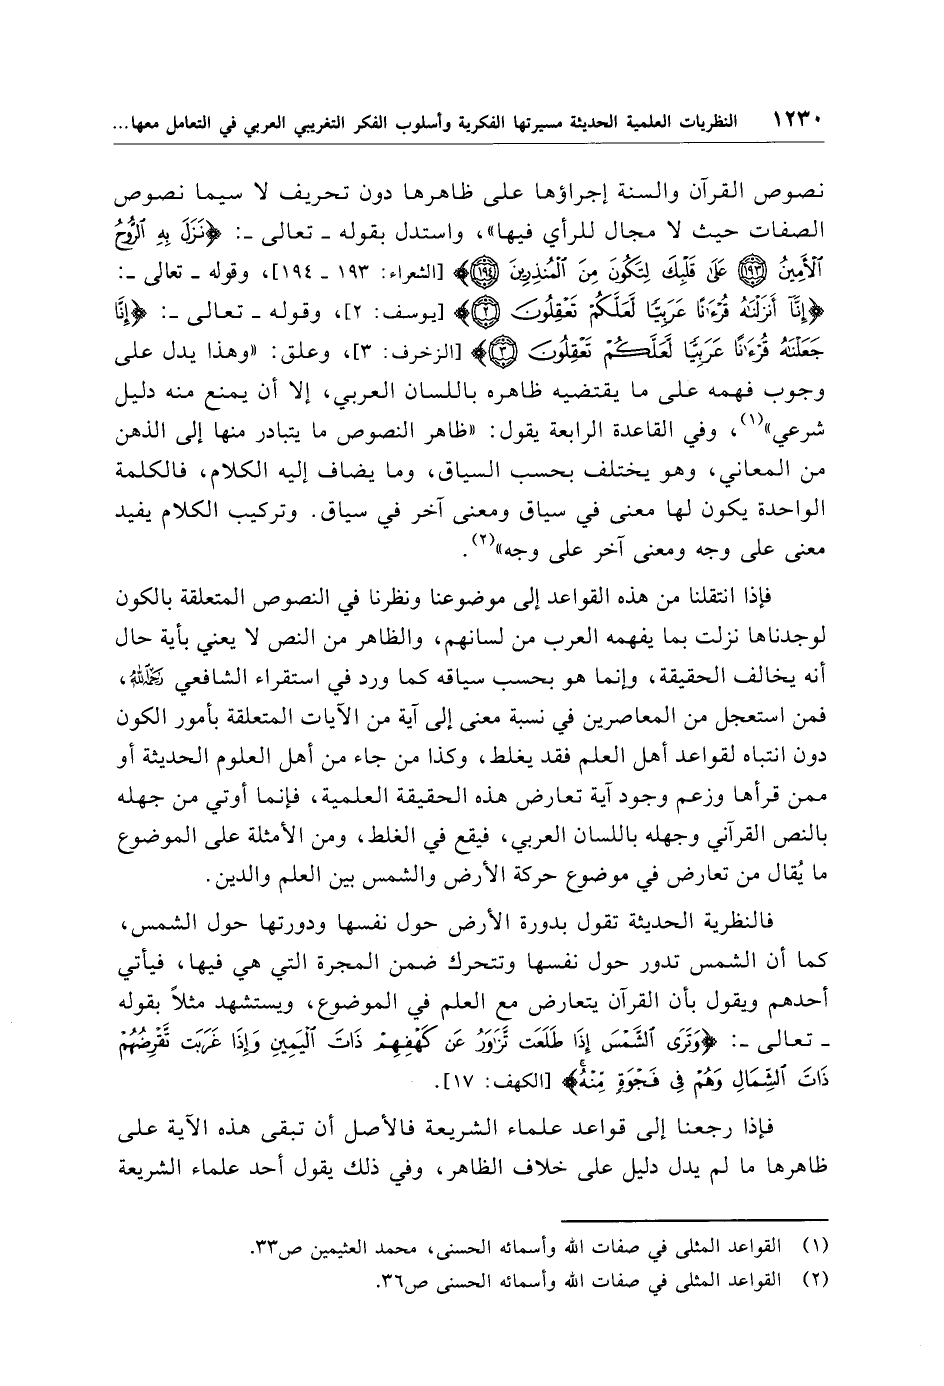 ١٢٣٠ النظريات العلمية الحديثة مسيرتها الفكرية وأسلوب الفكر التغريبي العربي في التعامل معها...
نصوص القرآن والسنة إجراؤها على ظاهرها دون تحريف لا سيما نصوص
الصفات حيث لا مجال للرأي فيها»، واستدل بقوله ـ تعالى ـ: ﴿نَزَلَ بِهِ ٱلرُّوحُ
ٱلْأَمِينُ ۝١٩٣ عَلَىٰ قَلْبِكَ لِتَكُونَ مِنَ ٱلْمُنذِرِينَ ۝١٩٤﴾ [الشعراء: ١٩٣ ـ ١٩٤]، وقوله ـ تعالى ـ:
﴿إِنَّآ أَنزَلْنَٰهُ قُرْءَٰنًا عَرَبِيًّا لَّعَلَّكُمْ تَعْقِلُونَ ۝٢﴾ [يوسف: ٢]، وقوله ـ تعالى ـ: ﴿إِنَّا
جَعَلْنَٰهُ قُرْءَٰنًا عَرَبِيًّا لَّعَلَّكُمْ تَعْقِلُونَ ۝٣﴾ [الزخرف: ٣]، وعلق: «وهذا يدل على
وجوب فهمه على ما يقتضيه ظاهره باللسان العربي، إلا أن يمنع منه دليل
شرعي»(١)، وفي القاعدة الرابعة يقول: «ظاهر النصوص ما يتبادر منها إلى الذهن
من المعاني، وهو يختلف بحسب السياق، وما يضاف إليه الكلام، فالكلمة
الواحدة يكون لها معنى في سياق ومعنى آخر في سياق. وتركيب الكلام يفيد
معنى على وجه ومعنى آخر على وجه»(٢).
فإذا انتقلنا من هذه القواعد إلى موضوعنا ونظرنا في النصوص المتعلقة بالكون
لوجدناها نزلت بما يفهمه العرب من لسانهم، والظاهر من النص لا يعني بأية حال
أنه يخالف الحقيقة، وإنما هو بحسب سياقه كما ورد في استقراء الشافعي رحمه الله،
فمن استعجل من المعاصرين في نسبة معنى إلى آية من الآيات المتعلقة بأمور الكون
دون انتباه لقواعد أهل العلم فقد يغلط، وكذا من جاء من أهل العلوم الحديثة أو
ممن قرأها وزعم وجود آية تعارض هذه الحقيقة العلمية، فإنما أوتي من جهله
بالنص القرآني وجهله باللسان العربي، فيقع في الغلط، ومن الأمثلة على الموضوع
ما يُقال من تعارض في موضوع حركة الأرض والشمس بين العلم والدين.
فالنظرية الحديثة تقول بدورة الأرض حول نفسها ودورتها حول الشمس،
كما أن الشمس تدور حول نفسها وتتحرك ضمن المجرة التي هي فيها، فيأتي
أحدهم ويقول بأن القرآن يتعارض مع العلم في الموضوع، ويستشهد مثلاً بقوله
ـ تعالى ـ: ﴿وَتَرَى ٱلشَّمْسَ إِذَا طَلَعَت تَّزَٰوَرُ عَن كَهْفِهِمْ ذَاتَ ٱلْيَمِينِ وَإِذَا غَرَبَت تَّقْرِضُهُمْ
ذَاتَ ٱلشِّمَالِ وَهُمْ فِى فَجْوَةٍ مِّنْهُ ۚ﴾ [الكهف: ١٧].
فإذا رجعنا إلى قواعد علماء الشريعة فالأصل أن تبقى هذه الآية على
ظاهرها ما لم يدل دليل على خلاف الظاهر، وفي ذلك يقول أحد علماء الشريعة
(١) القواعد المثلى في صفات الله وأسمائه الحسنى، محمد العثيمين ص٣٣.
(٢) القواعد المثلى في صفات الله وأسمائه الحسنى ص٣٦.